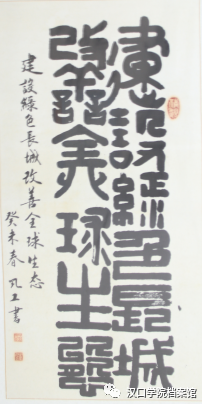 建設綠色長城
改善全球生態
建設綠色長城改善全球生态
癸未春 書
汉口学院档案馆